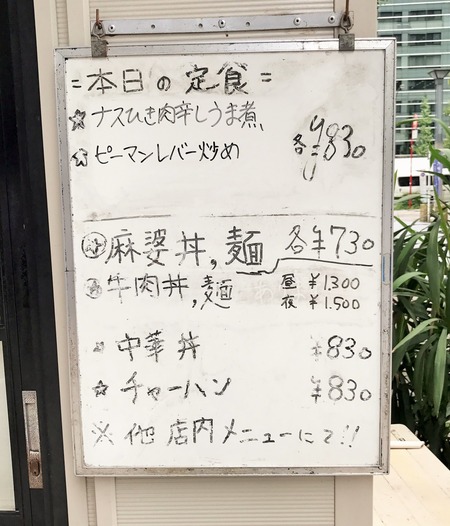 = 本日の定食 =
☆ ナスひき肉辛しうま煮
☆ ピーマンレバー炒め
各 ¥830
麻婆丼,麺 各¥730
牛肉丼,麺 昼 ¥1.300
夜 ¥1.500
中華丼 ¥830
☆ チャーハン ¥830
※ 他店内メニューにて!!